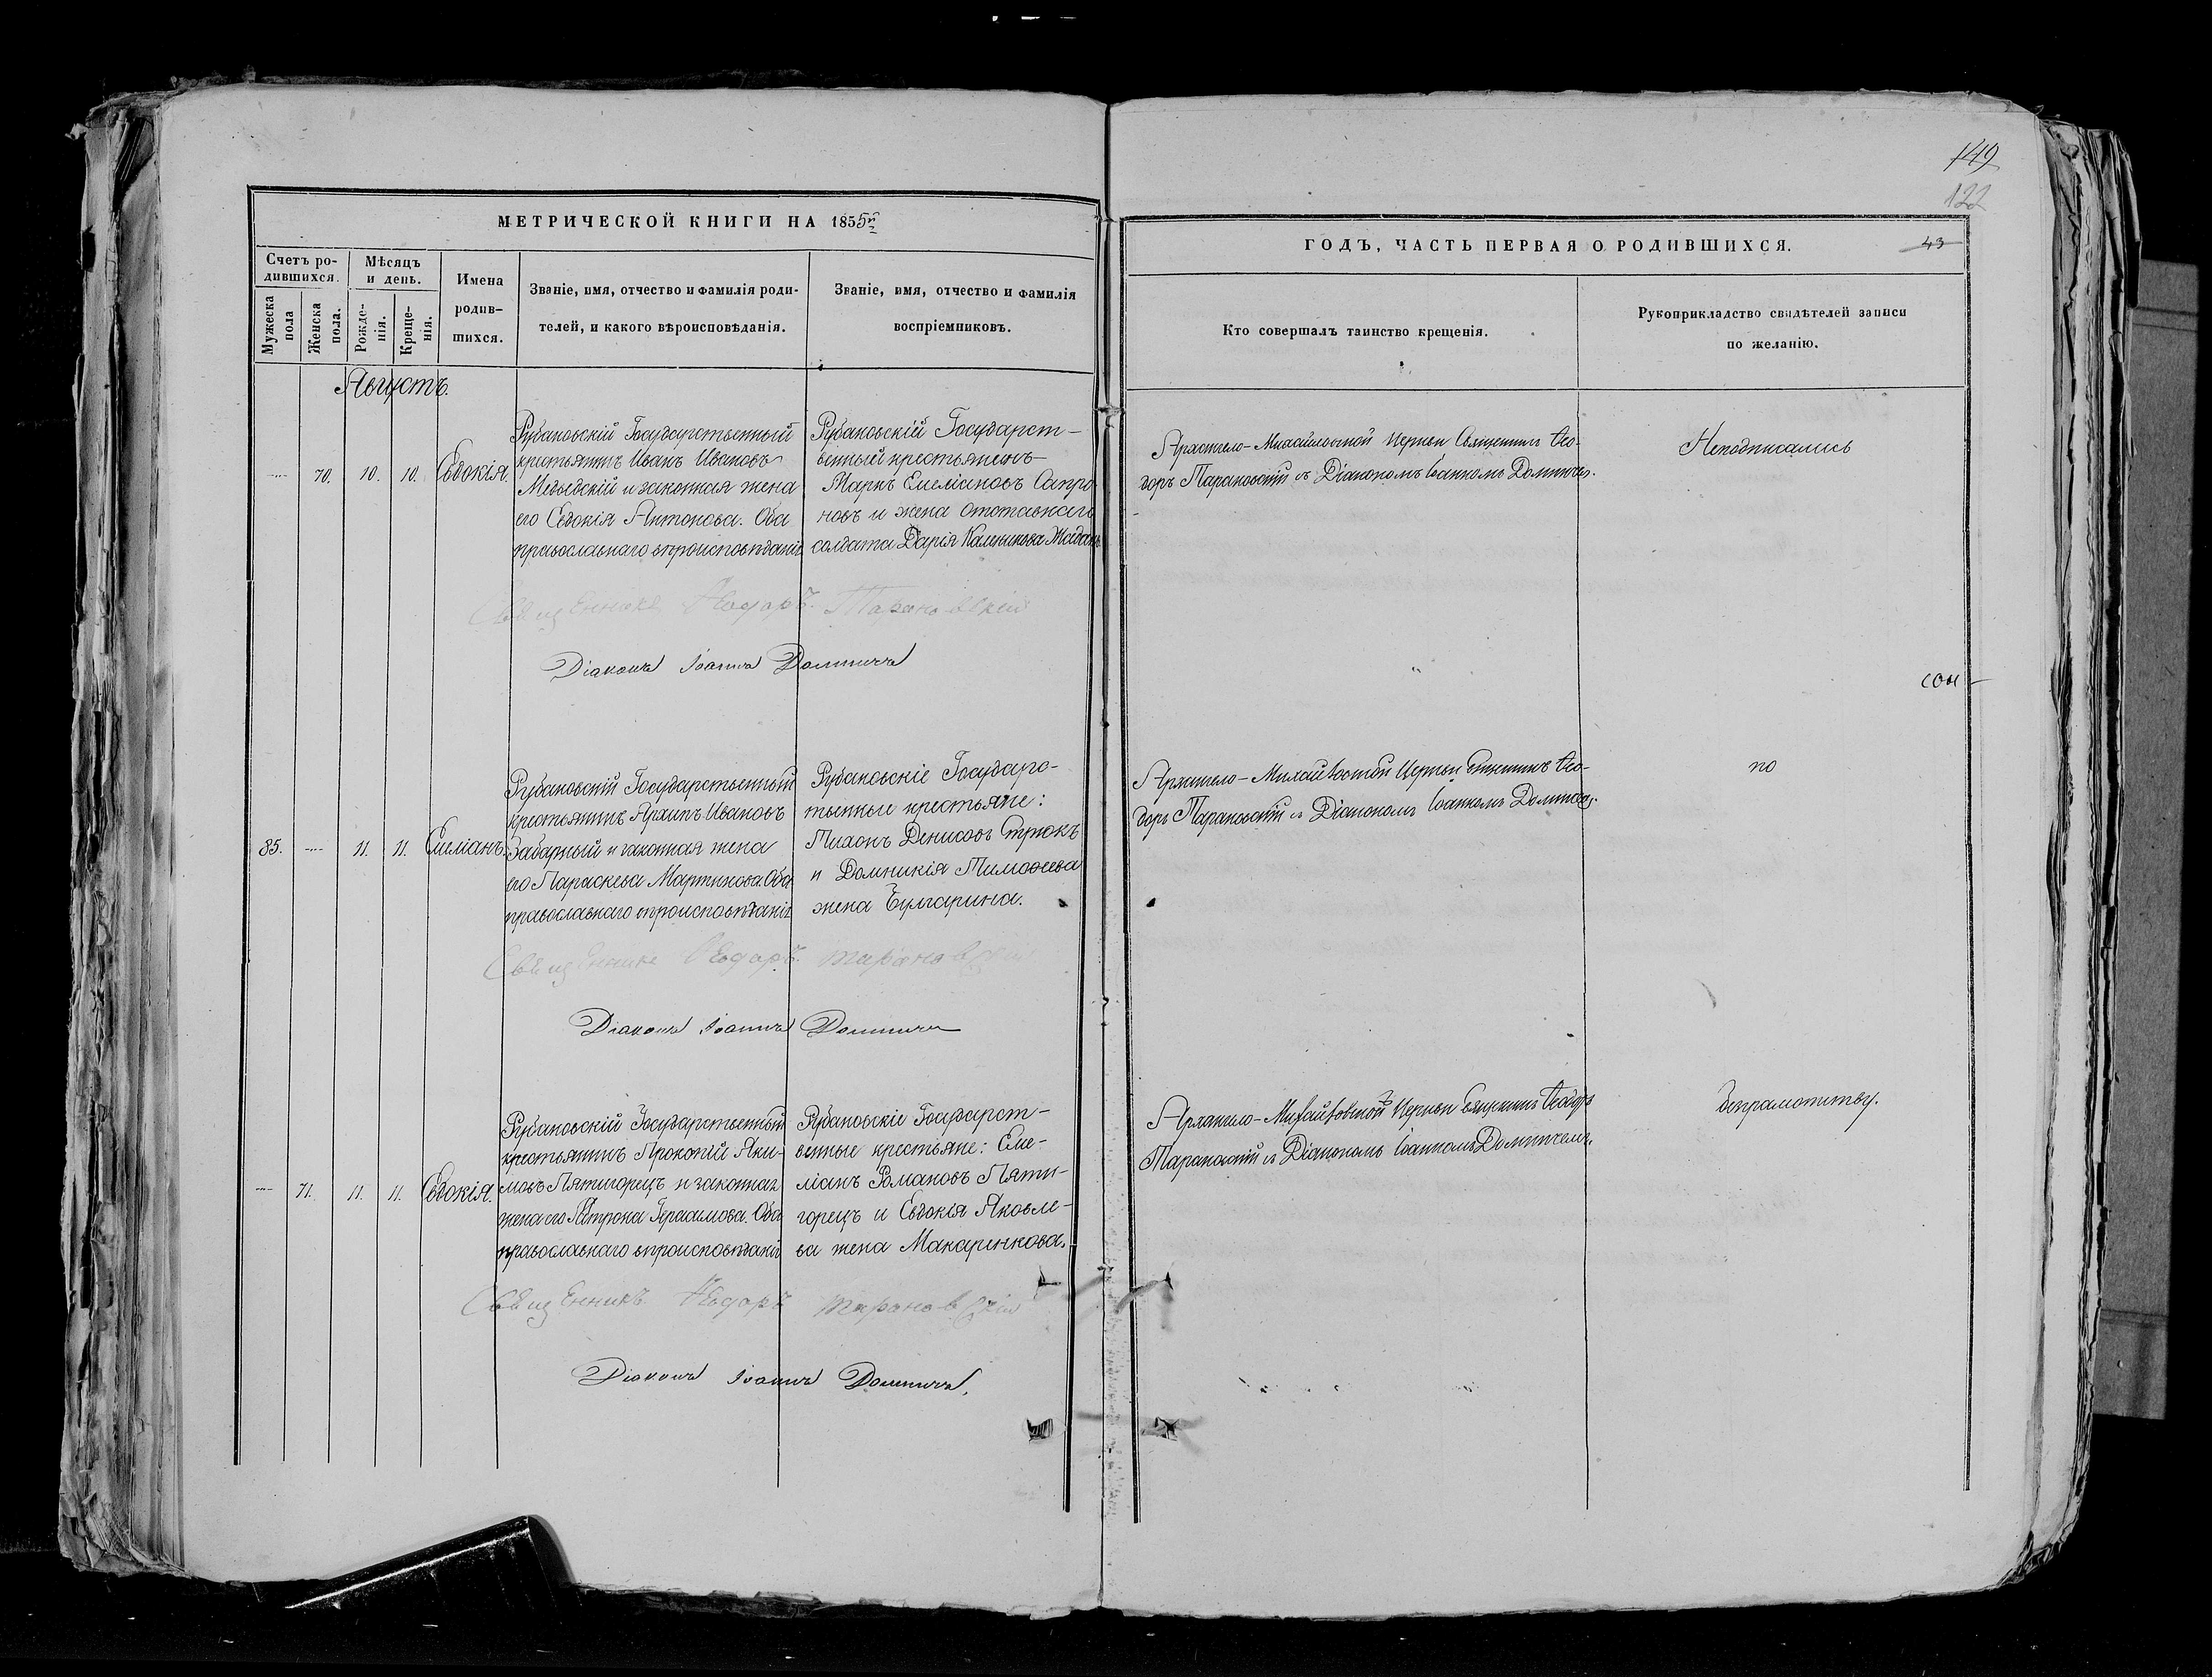 149
122
МЕТРИЧЕСКОЙ КНИГИ НА 1855й
ГОДЪ, ЧАСТЬ ПЕРВАЯ О РОДИВШИХСЯ.
43
Счетъ ро-
дившихся.
Мужеска
пола
Женска
пола.
Мѣсяцъ
и день.
Рожде-
нія.
Креще-
нія.
Имена
родив-
шихся.
Званіе, имя, отчество и фамилія роди-
телей, и какого вѣроисповѣданія.
Званіе, имя, отчество и фамилія
воспріемниковъ.
Кто совершалъ таинство крещенія.
Рукоприкладство свидѣтелей записи
по желанію.
Августъ.
70. 10. 10. Евдокія.
Рубановскій Государственный
крестьянинъ Иванъ Ивановъ
Медведскій и законная жена
его Евдокія Антонова. Оба
православнаго вѣроисповѣданія
Рубановскій Государст-
венный крестьянинъ
Маркъ Емеліановъ Сапро
новъ и жена отставнаго
солдата Дарія Каленикова
Архангело-Михайловской Церкви Священникъ Ѳео-
доръ Тарановскій съ Діакономъ Іоанномъ Домничемъ.
Неподписались
Священникъ Ѳеодоръ Тарановскій
Діаконъ Іоаннъ Домничъ
сои
85. 11. 11. Емеліанъ.
Рубановскій Государственный
крестьянинъ Архипъ Ивановъ
Забарный и законная жена
его Параскева Мартинова. Оба
православнаго вѣроисповѣданія
Рубановскіе Государс-
твенные крестьяне:
Тихонъ Денисовъ Стрюкъ
и Домникія Тимоѳеева
жена Булгарина.
Архангело-Михайловской Церкви Священникъ Ѳео-
доръ Тарановскій съ Діакономъ Іоанномъ Домничемъ.
по
Священникъ Ѳеодоръ Тарановскій
Діаконъ Іоаннъ Домничъ
71. 11. 11. Евдокія.
Рубановскій Государственный
крестьянинъ Прокопій Яки-
мовъ Пятигорецъ и законная
жена его Матрона Герасимова. Оба
православнаго вѣроисповѣданія
Рубановскіе Государст-
венные крестьяне: Еме-
ліанъ Романовъ Пяти-
горецъ и Евдокія Яковле-
ва жена Макаренкова.
Архангело-Михайловской Церкви Священникъ Ѳеодоръ
Тарановскій съ Діакономъ Іоанномъ Домничемъ.
безграмотству.
Священникъ Ѳеодоръ Тарановскій
Діаконъ Іоаннъ Домничъ.